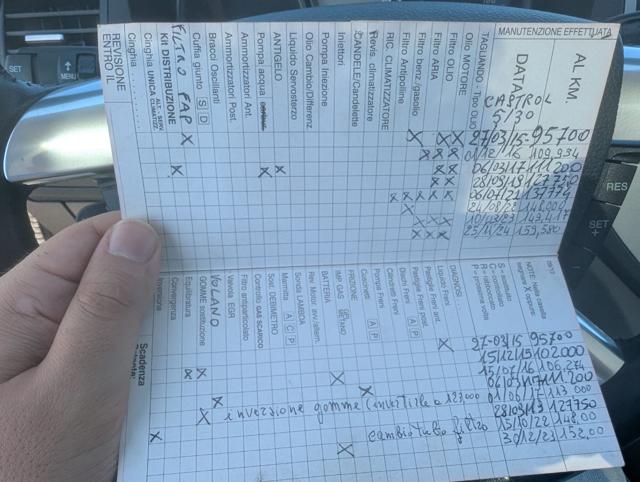 MANUTENZIONE EFFETTUATA
AL KM.
DATA
TAGLIANDO - Tipo OLIO
CASTROL
5/30
27/03/15 - 95700
109.934
06/03/17 111.200
28/03/18
24/08/22 148.000
10/03/23 149.417
25/11/24 155,580
Olio MOTORE
Filtro OLIO
Filtro ARIA
Filtro benz./gasolio
Filtro Antipolline
RIC. CLIMATIZZATORE
Revis. climatizzatore
CANDELE/Candelette
Iniettori
Pompa Iniezione
Olio Cambio/Differenz.
Liquido Servosterzo
ANTIGELO
Pompa acqua
Ammortizzatori Ant.
Ammortizzatori Post.
Bracci Oscillanti
Cuffia giunto S D
FILTRO FAP
Kit DISTRIBUZIONE
Cinghia UNICA ALT. - SERV. CLIMATIZ.
Cinghia
REVISIONE
ENTRO IL
NOTE: Nella casella
segnare X oppure:
S = sostituito
C = controllato
R = rabbocco
P = prossima volta
27-03/15 95700
15/12/15 102.000
15/07/16 106.274
06/03/17 111.200
01/06/17 113 000
28/03/18 127750
15/10/22 148,00
30/12/23 152,00
DIAGNOSI
Liquido Freni
Pastiglie Freni ant.
Pastiglie Freni post.
Dischi Freni A P
Cilindretti Freni
Pompa Freni
Cuscinetti A P
FRIZIONE
IMP. GAS GPL METANO
BATTERIA
Rev. Motor. avv./altern.
Sonda LAMBDA
Marmitta A C P
Sost. DEBIMETRO
Controllo GAS SCARICO
Filtro antiparticolato
Valvola EGR
VOLANO
GOMME sostituzione
Equilibratura
Convergenza
Inversione
inversione gomme (invertirle a 123000
cambio tutto filtro
Scadenza
SET
MENU
RES
SET
+